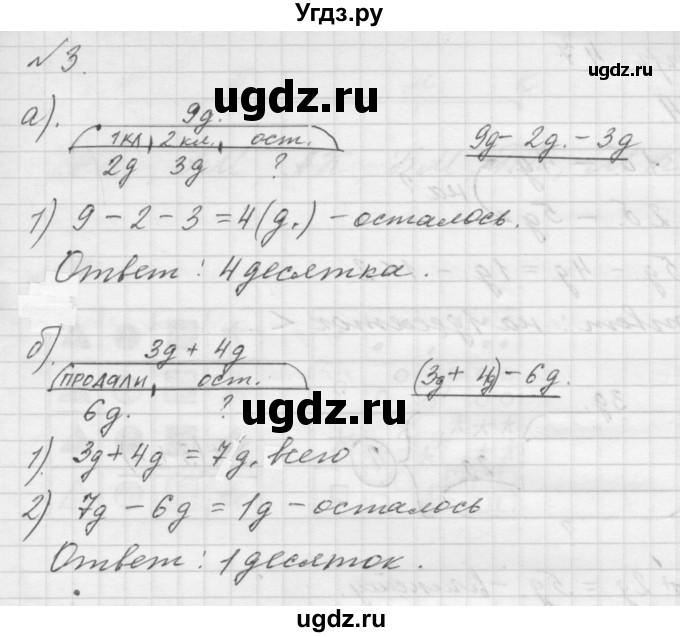 Угдз.ру
№3.
ugdz.ru
ugdz.ru
а). 9д.
1кл, 2 кл. ост.
2д 3д ?
9д - 2д. - 3д
1) 9 - 2 - 3 = 4(д.) - осталось.
Ответ: 4 десятка.
б). 3д + 4д
продали, ост.
6д. ?
(3д + 4д) - 6д.
ugdz.ru
ugdz.ru
1). 3д + 4д = 7д, всего
2) 7д - 6д = 1д - осталось
Ответ: 1 десяток.
ugdz.ru